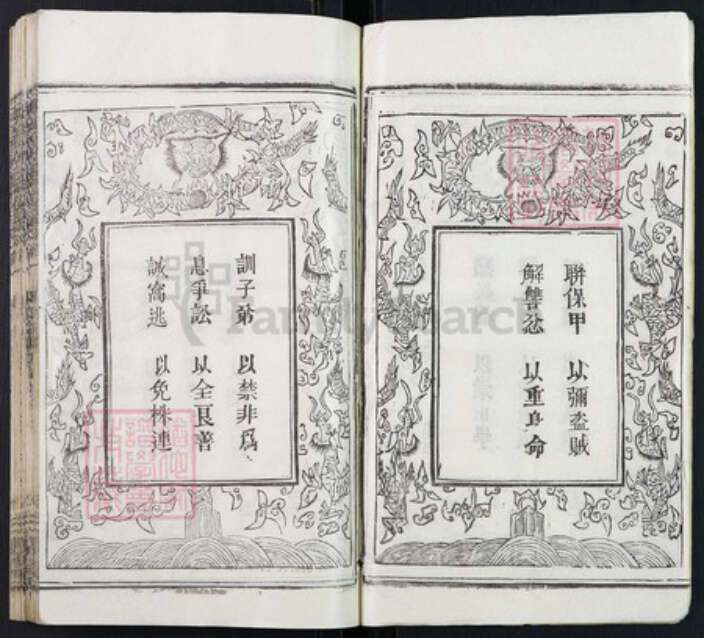 聯保甲 以彌盗賊
解讐忿 以重身命
訓子弟 以禁非爲
息爭訟 以全良善
誡窩逃 以免株連
FamilySearch